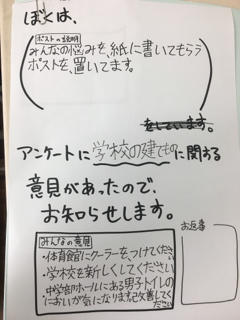 ぼくは、
ポストの説明
みんなの悩みを、紙に書いてもらう
ポストを、置いてます。
をしています。
アンケートに学校の建てものに関する
意見があったので、
お知らせします。
みんなの意見
・体育館にクーラーをつけてください
・学校を新しくしてください
・中学部ホールにある男子トイレの
においが気になります。改善してください
お返事